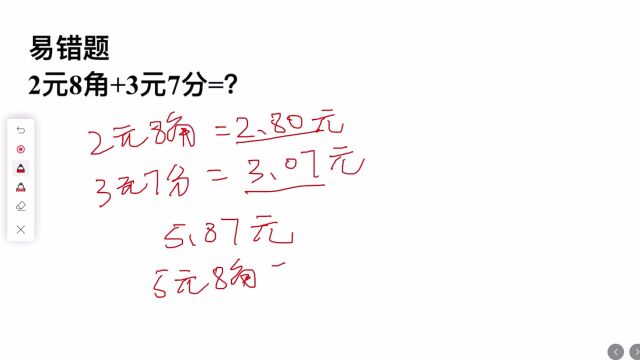 易错题
2元8角+3元7分=?
2元8角=2.80元
3元7分=3.07元
5.87元
5元8角